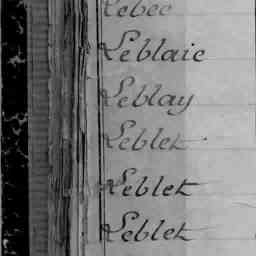 Lebec
Leblaic
Leblay
Leblet
Leblet
Leblet